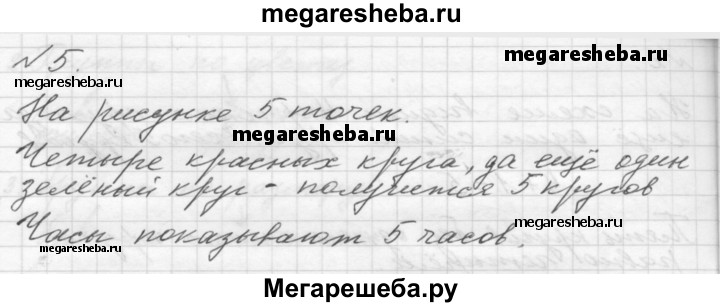 megaresheba.ru
№ 5.
megaresheba.ru
megaresheba.ru
На рисунке 5 точек.
megaresheba.ru
Четыре красных круга, да ещё один
зелёный круг - получится 5 кругов
Часы показывают 5 часов.
megaresheba.ru
Мегарешеба.ру